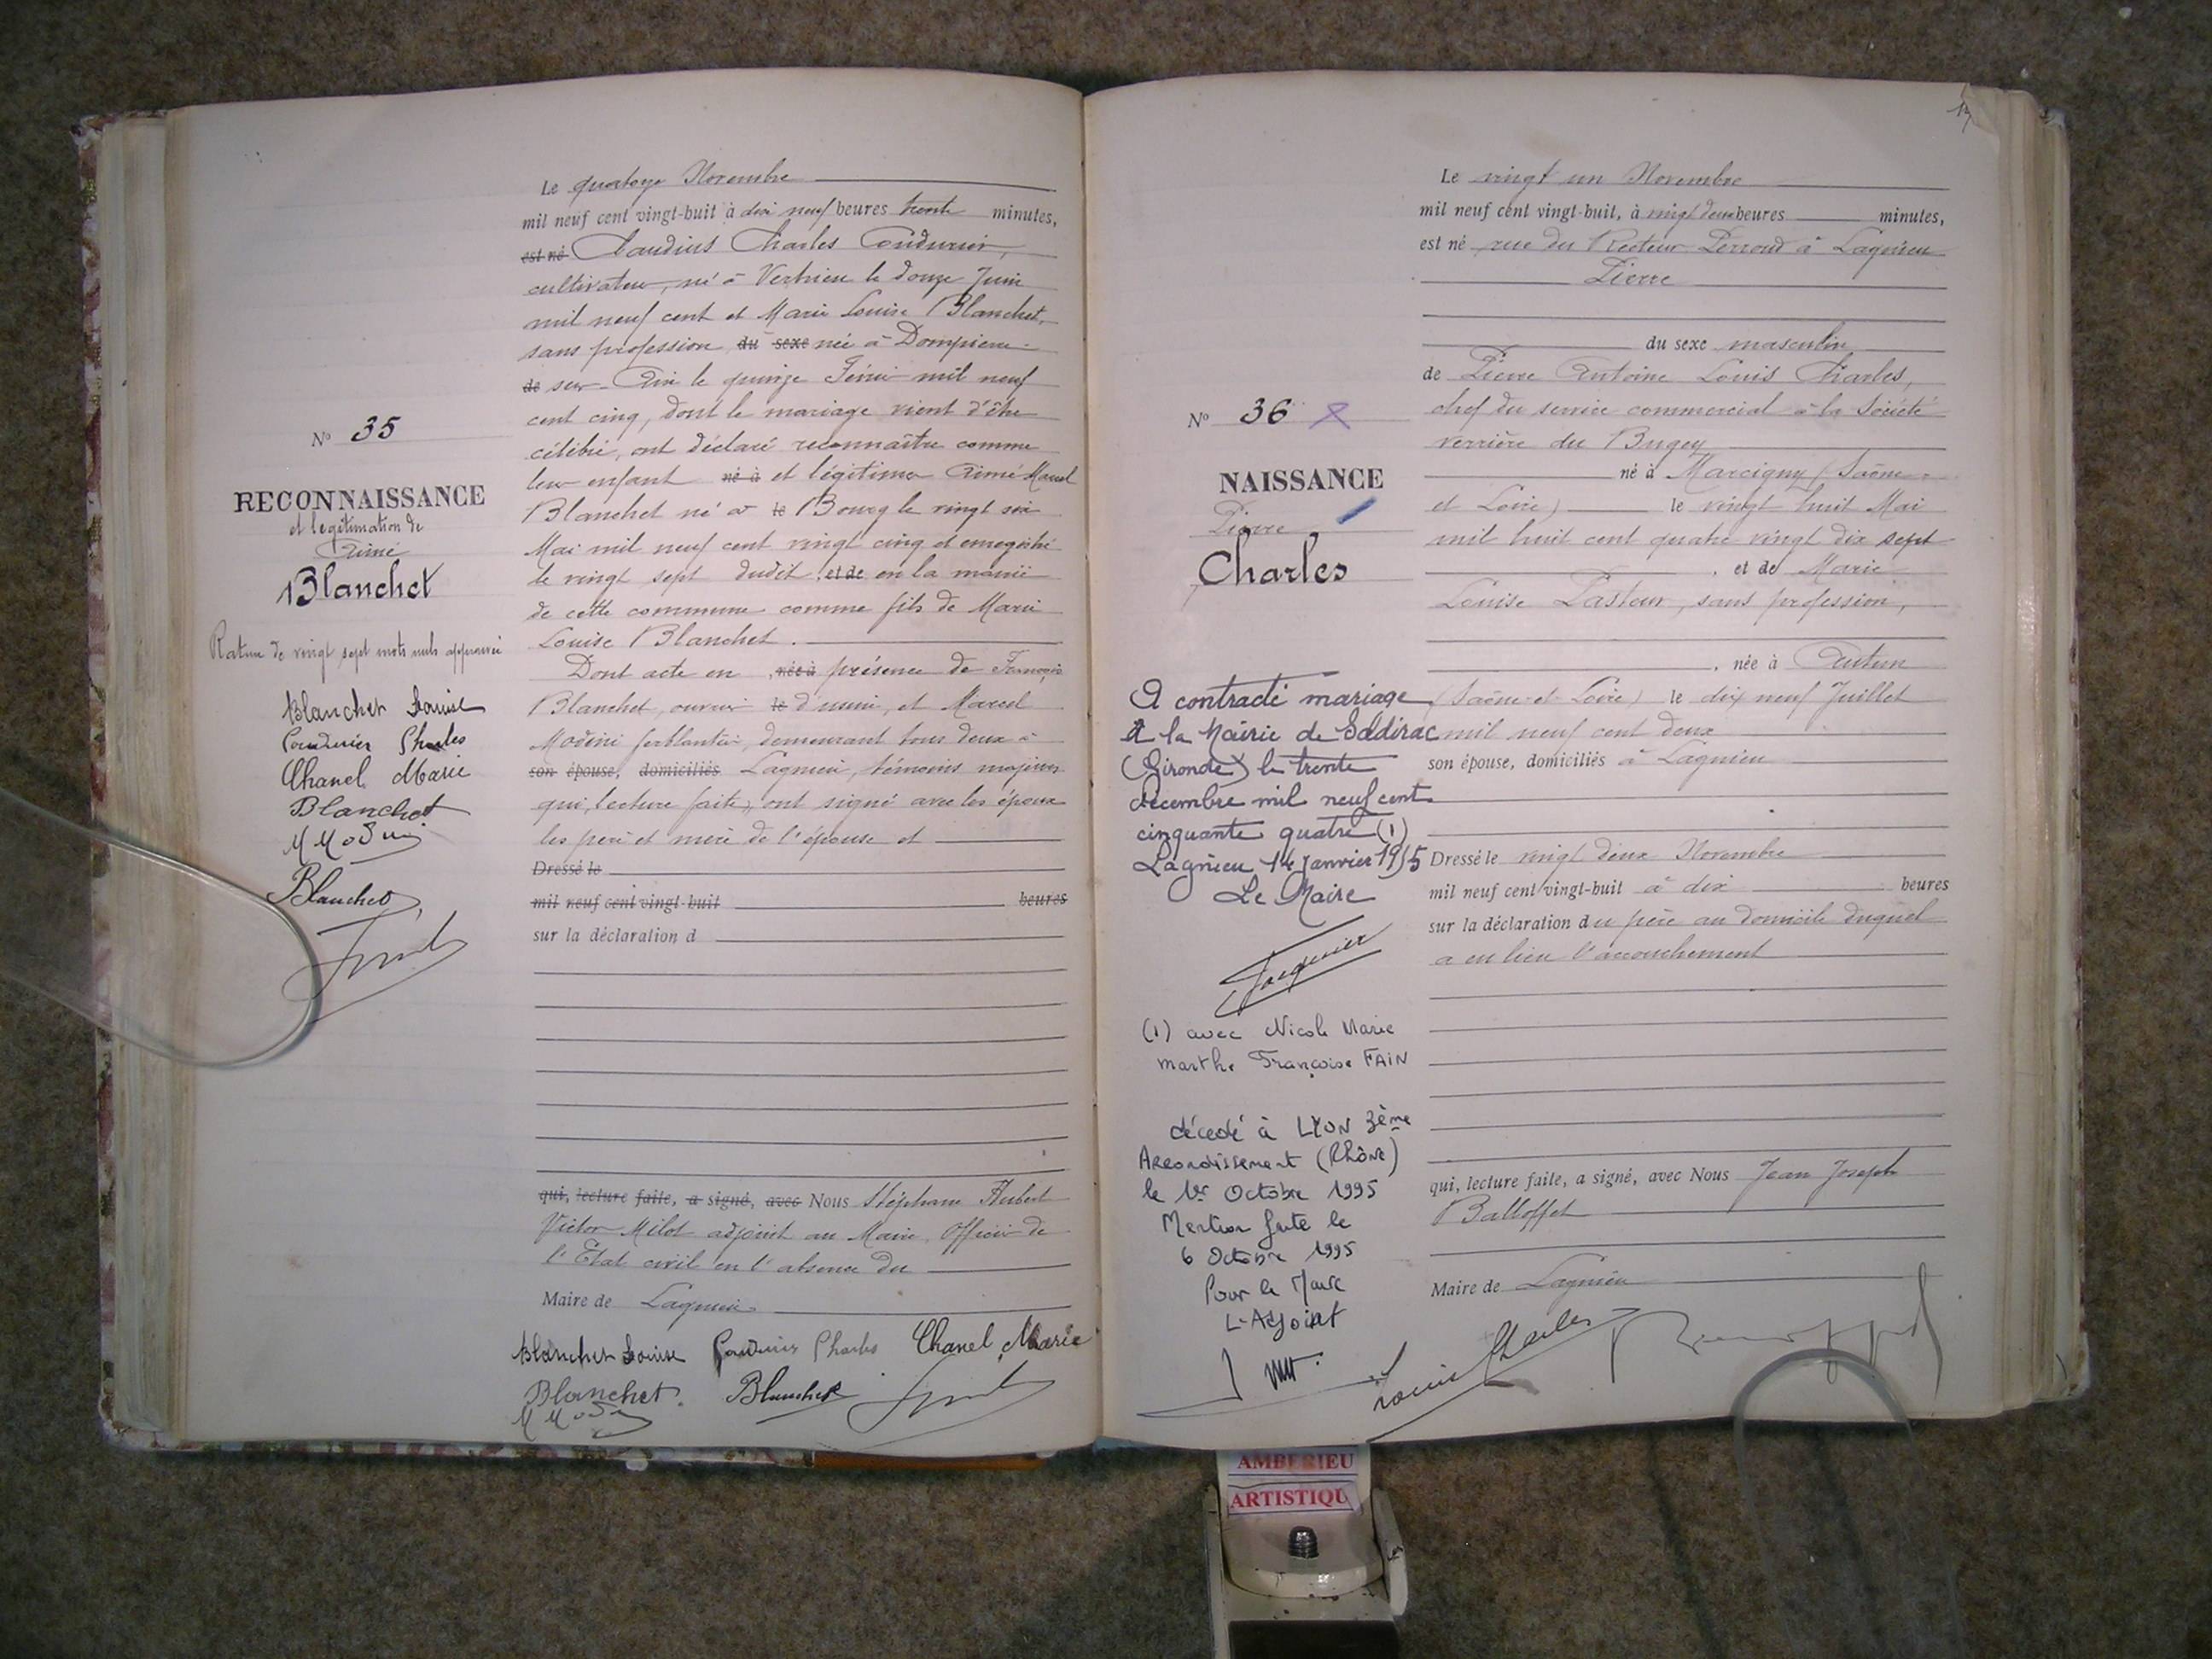 Le quatorze Novembre
mil neuf cent vingt-huit à dix neuf heures trente minutes,
est né Claudius Charles Coudurier,
cultivateur, né à Vertrieu le douze Juin
mil neuf cent et Marie Louise Blanchet,
sans profession du sexe née à Dompierre
de sur-Ain le quinze Février mil neuf
cent cinq, dont le mariage vient d'être
célébré, ont déclaré reconnaître comme
leur enfant né à et légitimer Aimé Marcel
Blanchet né à le Bourg le vingt six
Mai mil neuf cent vingt cinq et enregistré
le vingt sept dudit, et de en la mairie
de cette commune comme fils de Marie
Louise Blanchet.
Dont acte en , née à présence de François
Blanchet, ouvrier le d'usine, et Marcel
Modini ferblantier, demeurant tous deux à
son épouse, domiciliés Lagnieu, témoins majeurs
qui, lecture faite, ont signé avec les époux
les père et mère de l'épouse et
Dressé le
mil neuf cent vingt-huit heures
sur la déclaration d
qui, lecture faite, a signé, avec Nous Stéphane Hubert
Victor Milot adjoint au Maire, Officier de
l'Etat civil en l'absence du
Maire de Lagnieu.
Blanchet Louise Coudurier Charles Chanel Marie
Blanchet. Blanchet
M Modini
N° 35
RECONNAISSANCE
et légitimation de
Aimé
Blanchet
Rature de vingt sept mots nuls approuvée
Blanchet Louise
Coudurier Charles
Chanel Marie
Blanchet
M Modini
Blanchet
Le vingt un Novembre
mil neuf cent vingt-huit, à vingt deux heures minutes,
est né rue du Docteur Perroud à Lagnieu
Pierre
du sexe masculin
de Pierre Antoine Louis Charles,
chef du service commercial à la Société
verrière du Bugey
né à Marcigny (Saône-
et Loire) le vingt huit Mai
mil huit cent quatre vingt dix sept
, et de Marie
Louise Pastour, sans profession,
, née à Autun
(Saône-et Loire) le dix neuf Juillet
mil neuf cent deux
son épouse, domiciliés à Lagnieu
Dressé le vingt deux Novembre
mil neuf cent vingt-huit à dix heures
sur la déclaration du père au domicile duquel
a eu lieu l'accouchement
qui, lecture faite, a signé, avec Nous Jean Joseph
Balloffet
Maire de Lagnieu
Louis Charles
N° 36
NAISSANCE
Pierre
Charles
A contracté mariage
A la Mairie de Sadirac
(Gironde) le trente
décembre mil neuf cent
cinquante quatre (1)
Lagnieu 14 janvier 1955
Le Maire
(1) avec Nicole Marie
Marthe Françoise FAIN
décédé à LYON 3ème
Arrondissement (Rhône)
le 1er Octobre 1995
Mention faite le
6 Octobre 1995
Pour le Maire
L'Adjoint
AMBERIEU
ARTISTIQU